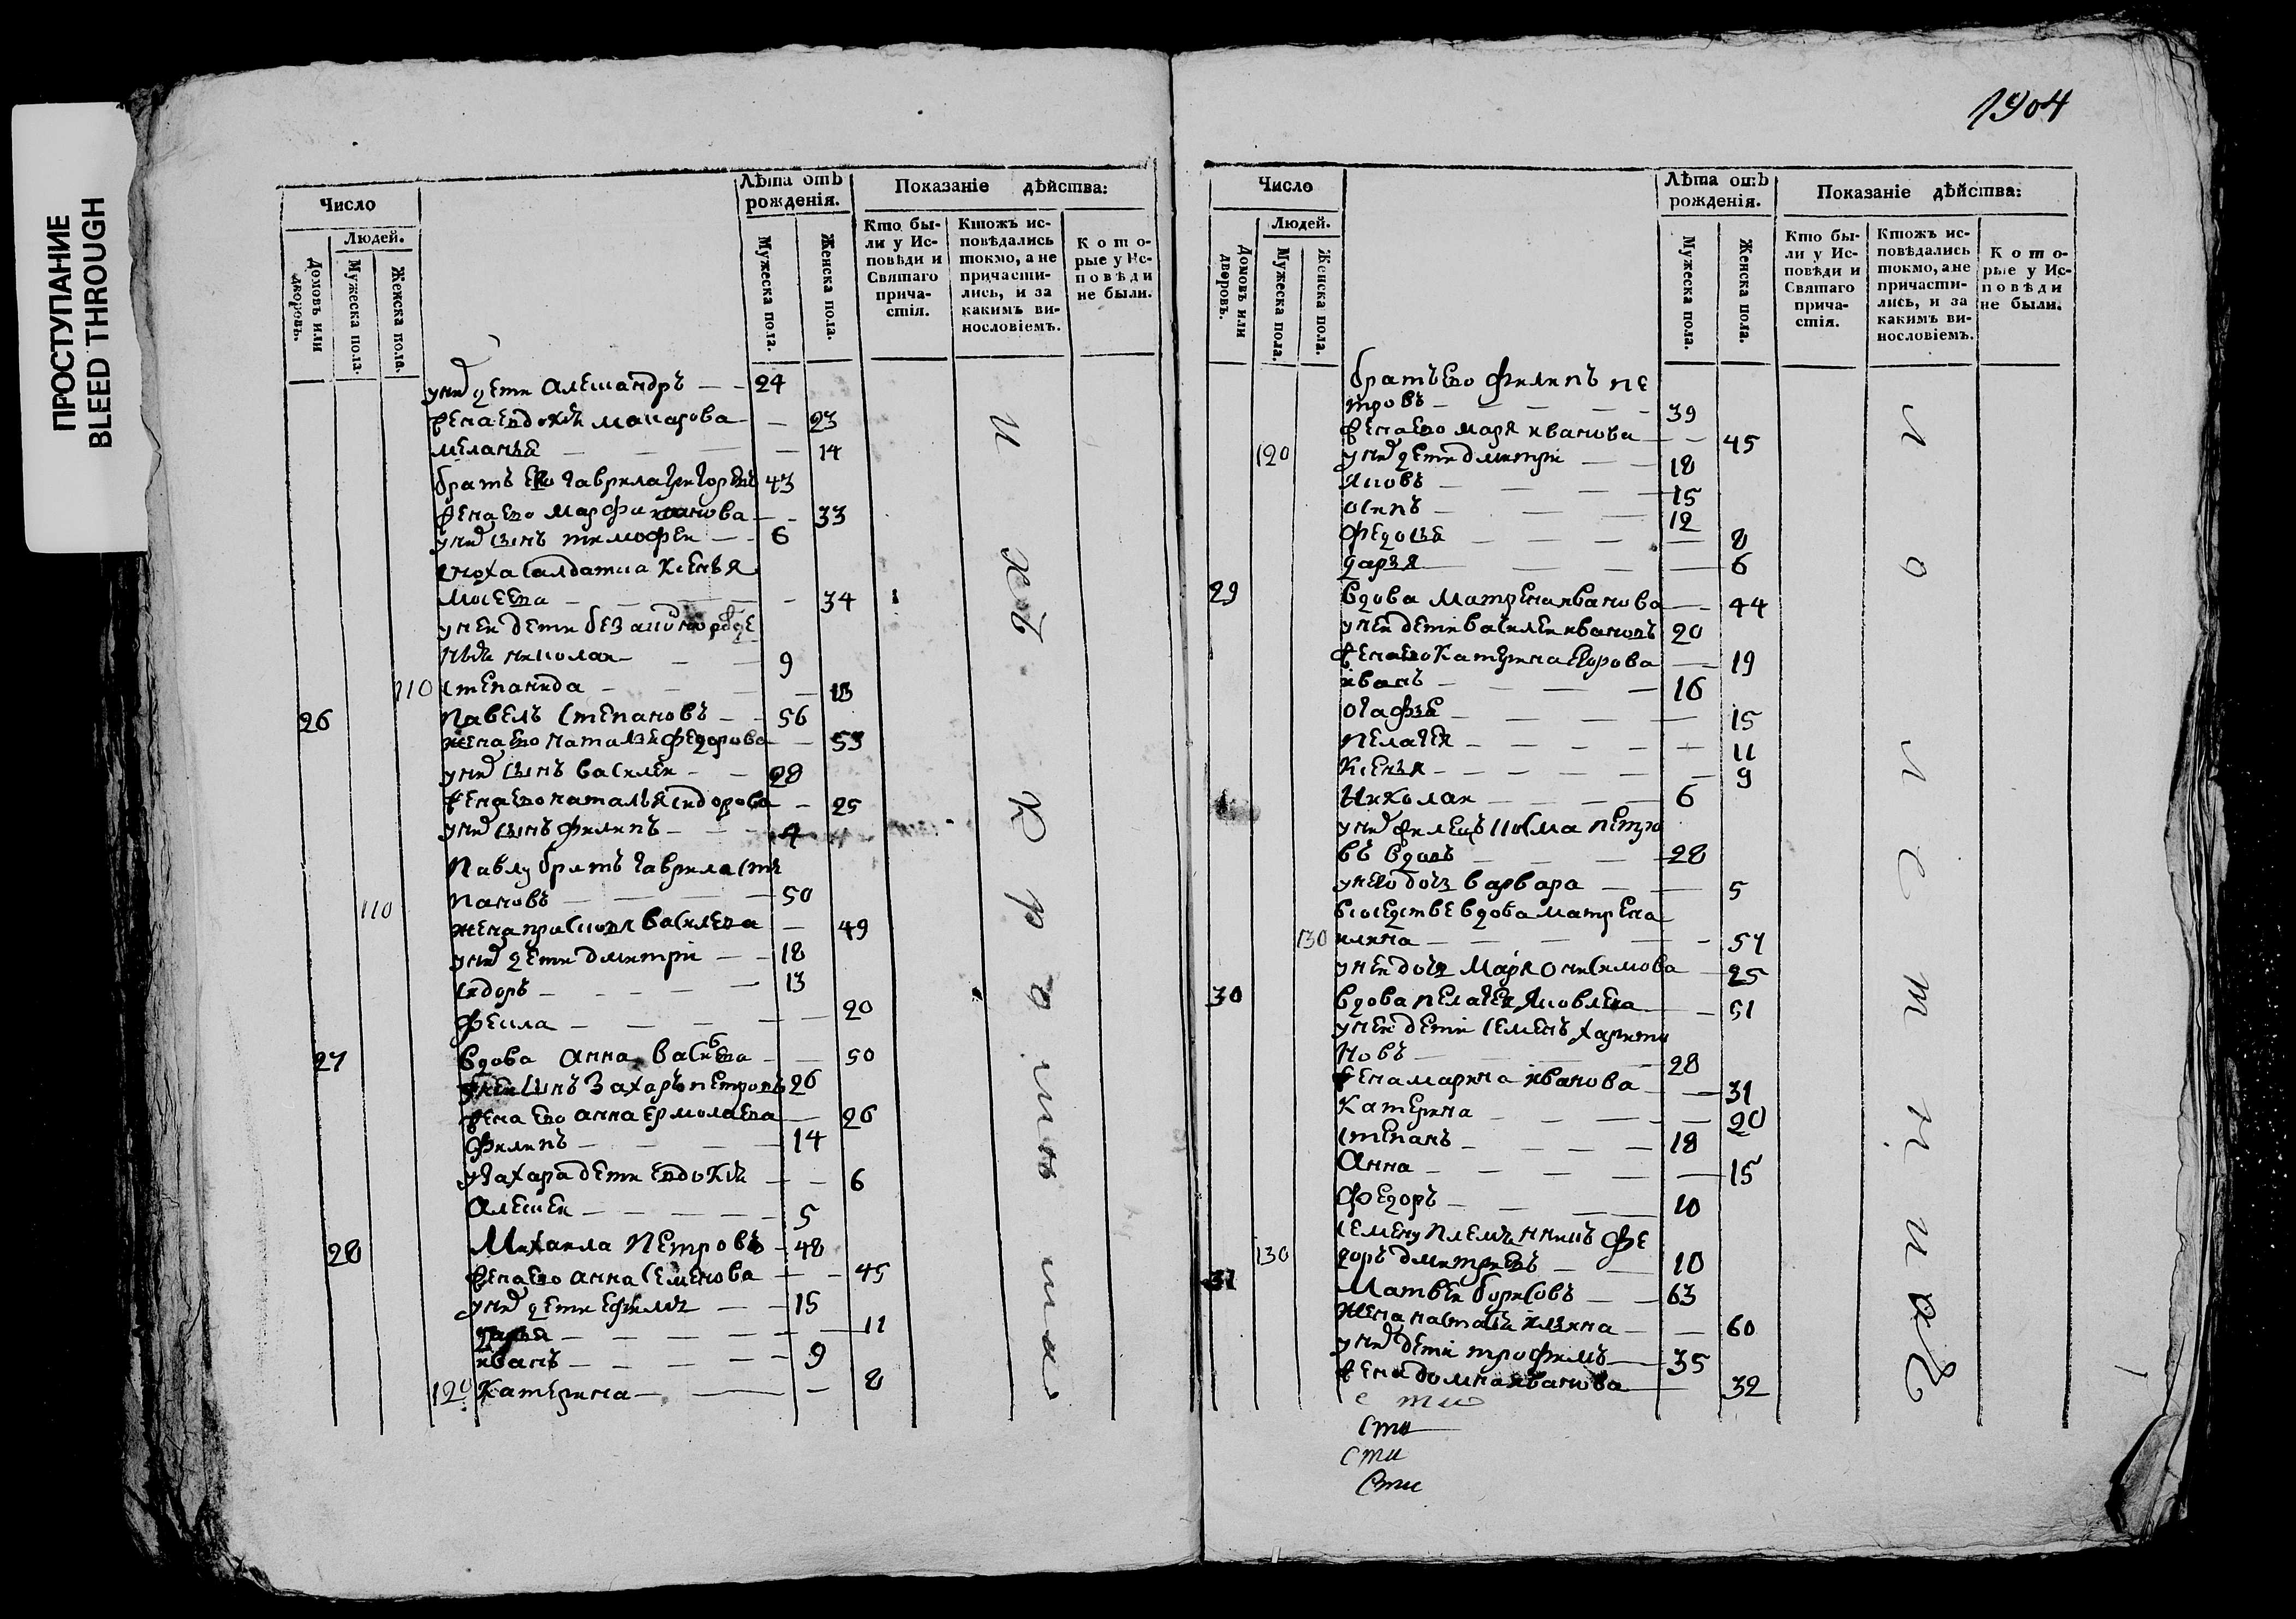 ПРОСТУПАНИЕ
BLEED THROUGH
Число
Лѣта отъ рожденія.
Показаніе дѣйства:
Людей.
Домовъ или дворовъ.
Мужеска пола.
Женска пола.
Мужеска пола.
Женска пола.
Кто бы-
ли у Ис-
повѣди и
Святаго
прича-
стія.
Ктожъ ис-
повѣдались
токмо, а не
причасти-
лись, и за
какимъ ви-
нословіемъ.
Кото-
рые у Ис-
повѣди
не были.
у нихъ дети Александръ 24
жена Евдокия Макарова 23
Меланья 14
братъ Ево Гаврила Григорьевъ 43
жена Ево Марфа 33
у нихъ сынъ тимофеи 6
сноха салдатка Ксенья
Мосеева 34
у неи дети без
николаи 9
110 степанида 13
26 Павелъ степановъ 56
жена Ево наталья федорова 53
у нихъ сынъ василеи 28
жена Ево наталья сидорова 25
у нихъ сынъ филипъ 4
Павлу братъ Гаврила сте
110 пановъ 50
жена прасковя василева 49
у нихъ дети дмитри 18
сидоръ 13
фекла 20
27 вдова анна васильева 50
у неи сынъ Захаръ петровъ 26
жена Ево анна ермолаева 26
филипъ 14
у Захара дети евдокия 6
алексеи 5
28 Михаила Петровъ 48
жена Ево анна семенова 45
у нихъ дети ефимъ 15
дарья 11
иванъ 9
120 Катерина 8
и хъ К р а т к и
1904
Число
Лѣта отъ рожденія.
Показаніе дѣйства:
Людей.
Домовъ или дворовъ.
Мужеска пола.
Женска пола.
Мужеска пола.
Женска пола.
Кто бы-
ли у Ис-
повѣди и
Святаго
прича-
стія.
Ктожъ ис-
повѣдались
токмо, а не
причасти-
лись, и за
какимъ ви-
нословіемъ.
Кото-
рые у Ис-
повѣди
не были.
братъ Ево филипъ пе
тровъ 39
жена Ево маря иванова 45
120 у нихъ дети дмитри 18
яковъ 15
осипъ 12
федосья 8
дарья 6
29 вдова Матрена иванова 44
у неи дети василеи ивановъ 20
жена Ево катерина Егорова 19
иванъ 16
огафья 15
пелагея 11
Ксенья 9
Николаи 6
у нихъ Косма петро
въ вдовъ 28
у него дочь варвара 5
в соседстве вдова матрена
130 илина 54
у неи дочь Маря онисимова 25
30 вдова пелагея яковлева 51
у неи дети семенъ харито
новъ 28
жена марина иванова 31
Катерина 20
степанъ 18
Анна 15
федоръ 10
семену племянникъ фе
130 доръ дмитриевъ 10
31 Матвеи борисовъ 63
жена настася илина 60
у нихъ дети трофимъ 35
жена домна иванова 32
сти
сти
сти
сти